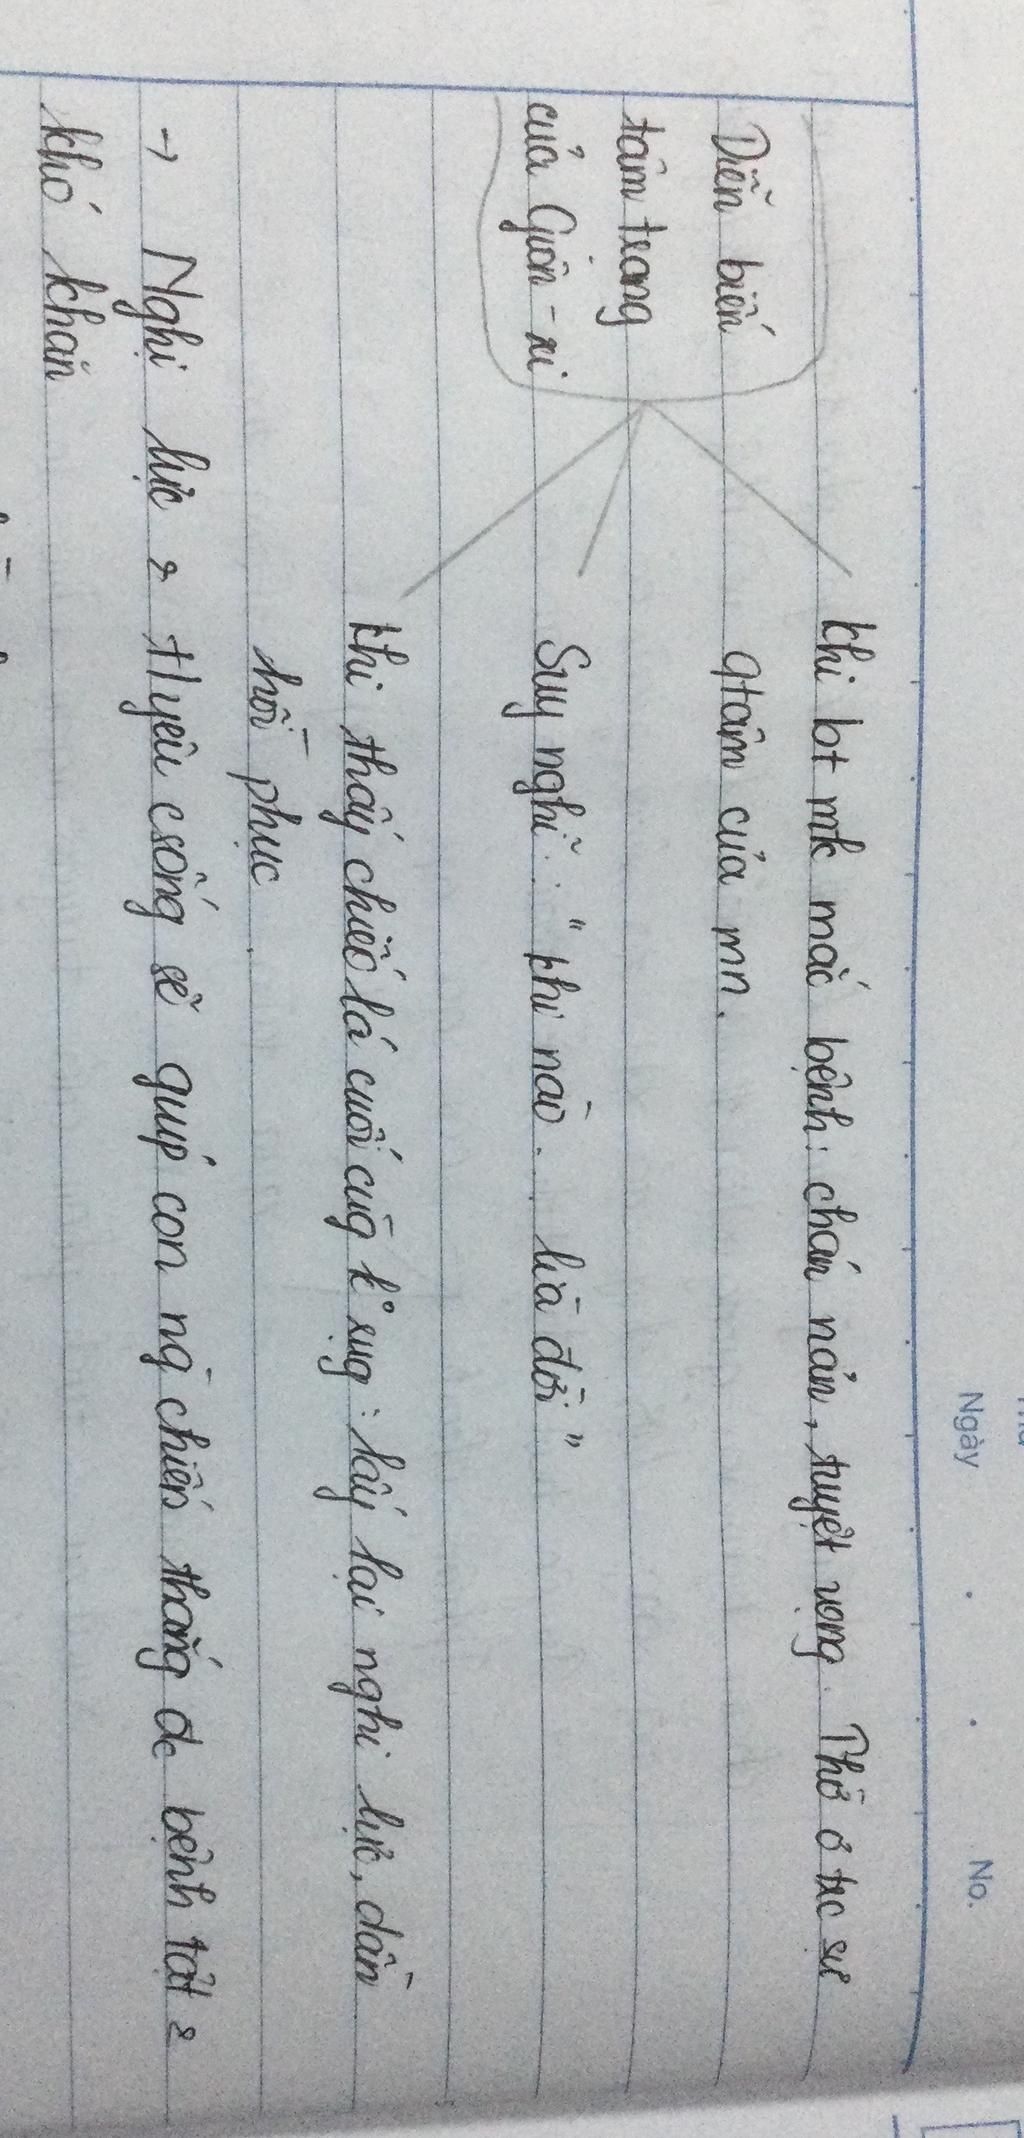 Ngày No.
khi bt mk mắc bệnh: chán nản, tuyệt vọng. Thờ ơ trc sự
Diễn biến qtâm của mn.
tâm trạng
của Giôn-xi Suy nghĩ: "khi nào... lìa đời"
khi thấy chiếc lá cuối cùg k° rụg: lấy lại nghị lực, dần
hồi phục.
→ Nghị lực & ty yêu csống sẽ giúp con ng chiến thắng đc bệnh tật &
khó khăn